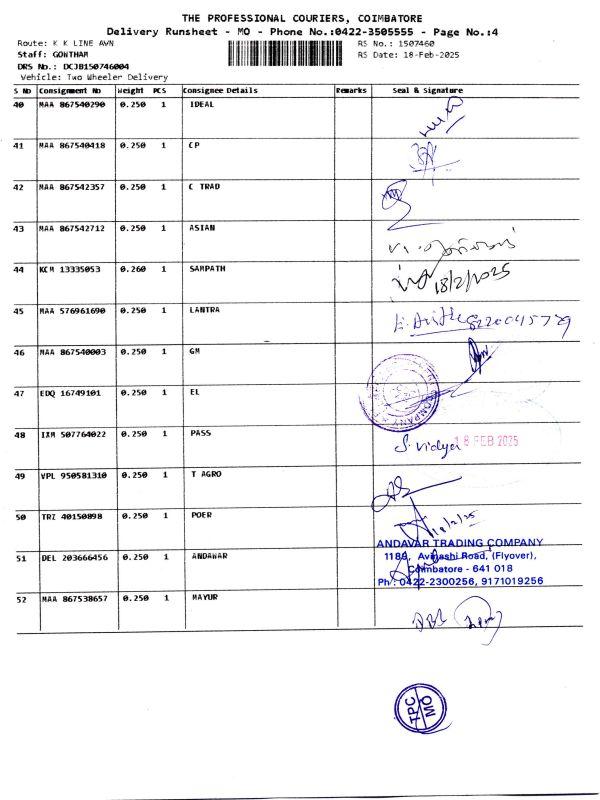 THE PROFESSIONAL COURIERS, COIMBATORE
Delivery Runsheet - MO - Phone No.:0422-3505555 - Page No.:4
Route: K K LINE AWN RS No.: 1507460
Staff: GOWTHAM RS Date: 18-Feb-2025
DRS No.: DCJB150746004
Vehicle: Two Wheeler Delivery
S No Consignment No Weight PCS Consignee Details Remarks Seal & Signature
40 MAA 867540290 0.250 1 IDEAL
41 MAA 867540418 0.250 1 CP
42 MAA 867542357 0.250 1 C TRAD
43 MAA 867542712 0.250 1 ASIAN
44 KCM 13335053 0.260 1 SAMPATH 18/2/2025
45 MAA 576961690 0.250 1 LANTRA 8220045779
46 MAA 867540003 0.250 1 GM
47 EDQ 16749101 0.250 1 EL
COMPANY
48 IXM 507764022 0.250 1 PASS S. Vidya 18 FEB 2025
49 VPL 950581310 0.250 1 T AGRO
50 TRZ 40150898 0.250 1 POER 18/2/25
ANDAVAR TRADING COMPANY
51 DEL 203666456 0.250 1 ANDAWAR 1189, Avinashi Road, (Flyover),
Coimbatore - 641 018
Ph : 0422-2300256, 9171019256
52 MAA 867538657 0.250 1 MAYUR
TPC
MO